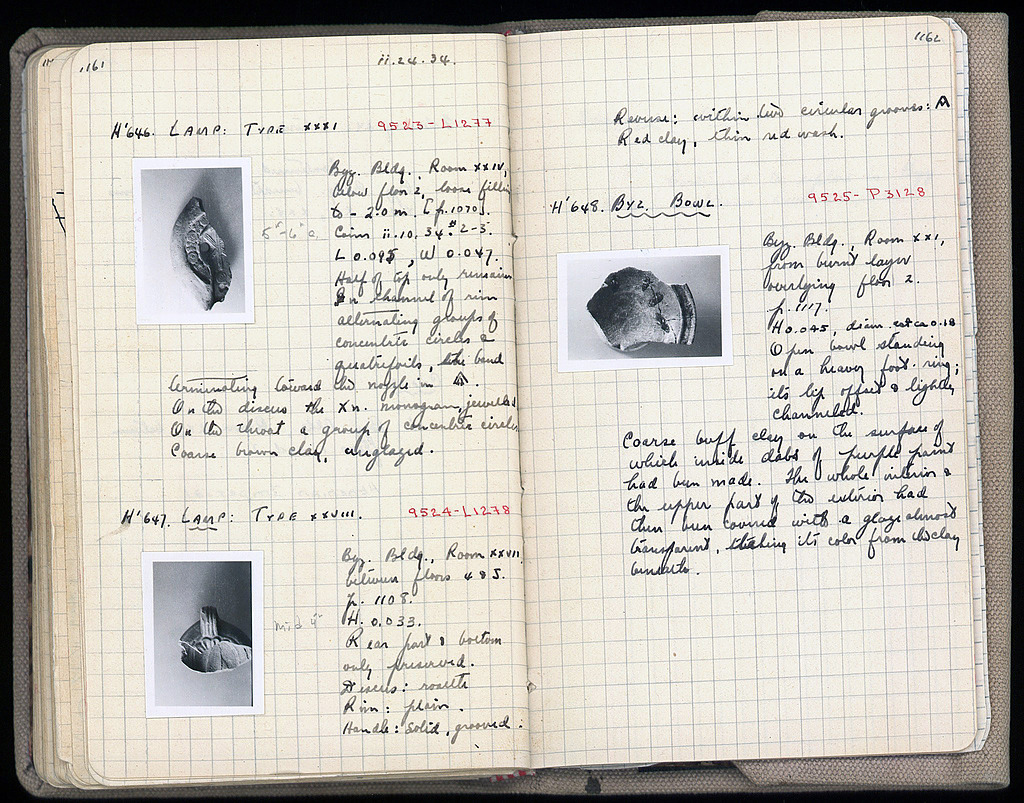 1161
ii.24.34.
H'646. LAMP: TYPE XXXI 9523-L1277
Byz. Bldg., Room XXIV,
below floor 2, loose filling
to -2.0 m. [p. 1070].
5th-6th c.
Coins ii.10.34 #2-5.
L 0.095, W 0.047.
Half of top only remains
In channel of rim
alternating groups of
concentric circles &
quatrefoils, the band
terminating toward the nozzle in
On the discus the Xn. monogram, jewelled
On the throat a group of concentric circles
Coarse brown clay, unglazed.
H'647. LAMP: TYPE XXVIII. 9524-L1278
Byz. Bldg., Room XXVII
between floors 4 & 5.
p. 1108.
mid 4th
H. 0.033.
Rear part & bottom
only preserved.
Discus: rosette
Rim: plain.
Handle: solid, grooved.
1162
Reverse: within two circular grooves: A
Red clay, thin red wash.
H'648. BYZ. BOWL. 9525-P3128
Byz. Bldg., Room XXI,
from burnt layer
overlying floor 2.
p. 1117.
H 0.045, diam. est ca 0.18
Open bowl standing
on a heavy foot-ring;
its lip offset & lightly
channeled.
Coarse buff clay on the surface of
which inside dabs of purple paint
had been made. The whole interior &
the upper part of the exterior had
then been covered with a glaze almost
transparent, taking its color from the clay
beneath.